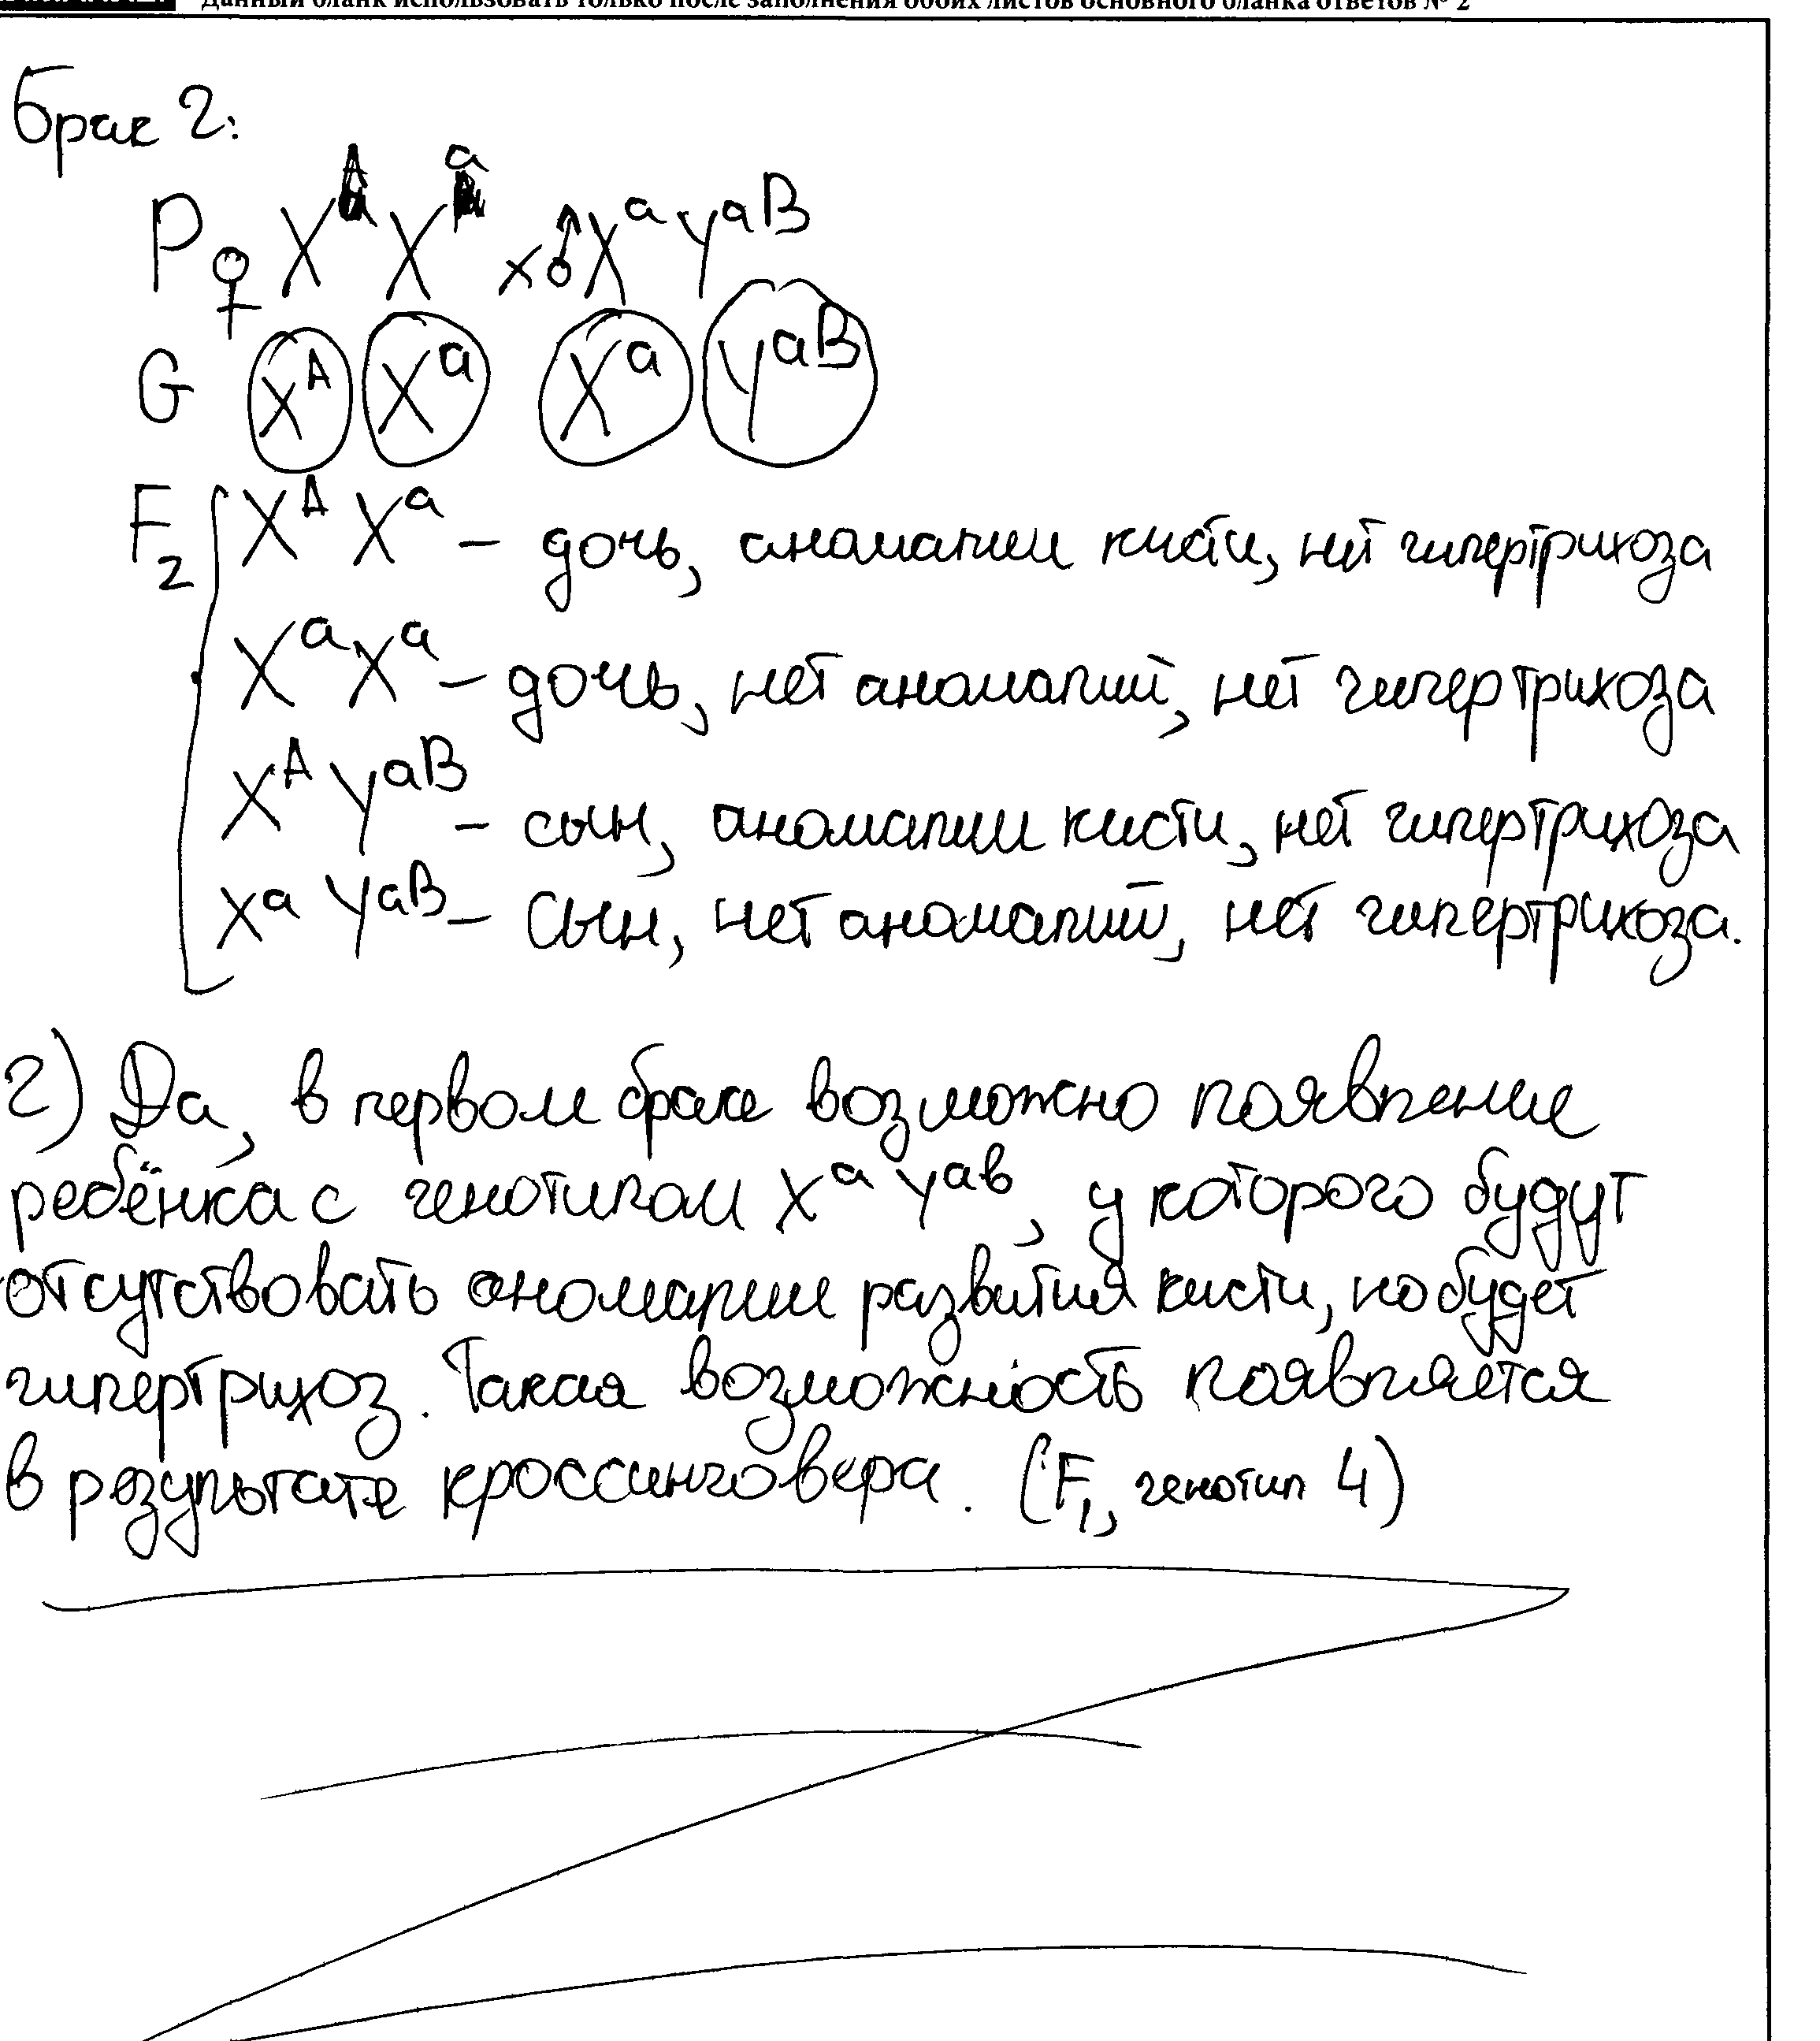 Данный бланк использовать только после заполнения обоих листов основного бланка ответов № 2
Брак 2:
P ♀ X^A X^a × ♂ X^a Y^aB
G X^A X^a X^a Y^aB
F2 X^A X^a – дочь, аномалии кисти, нет гипертрихоза
X^a X^a – дочь, нет аномалий, нет гипертрихоза
X^A Y^aB – сын, аномалии кисти, нет гипертрихоза
X^a Y^aB – сын, нет аномалий, нет гипертрихоза.
2) Да, в первом браке возможно появление
ребёнка с генотипом X^a Y^ab, у которого будут
отсутствовать аномалии развития кисти, но будет
гипертрихоз. Такая возможность появляется
в результате кроссинговера. (F1, генотип 4)